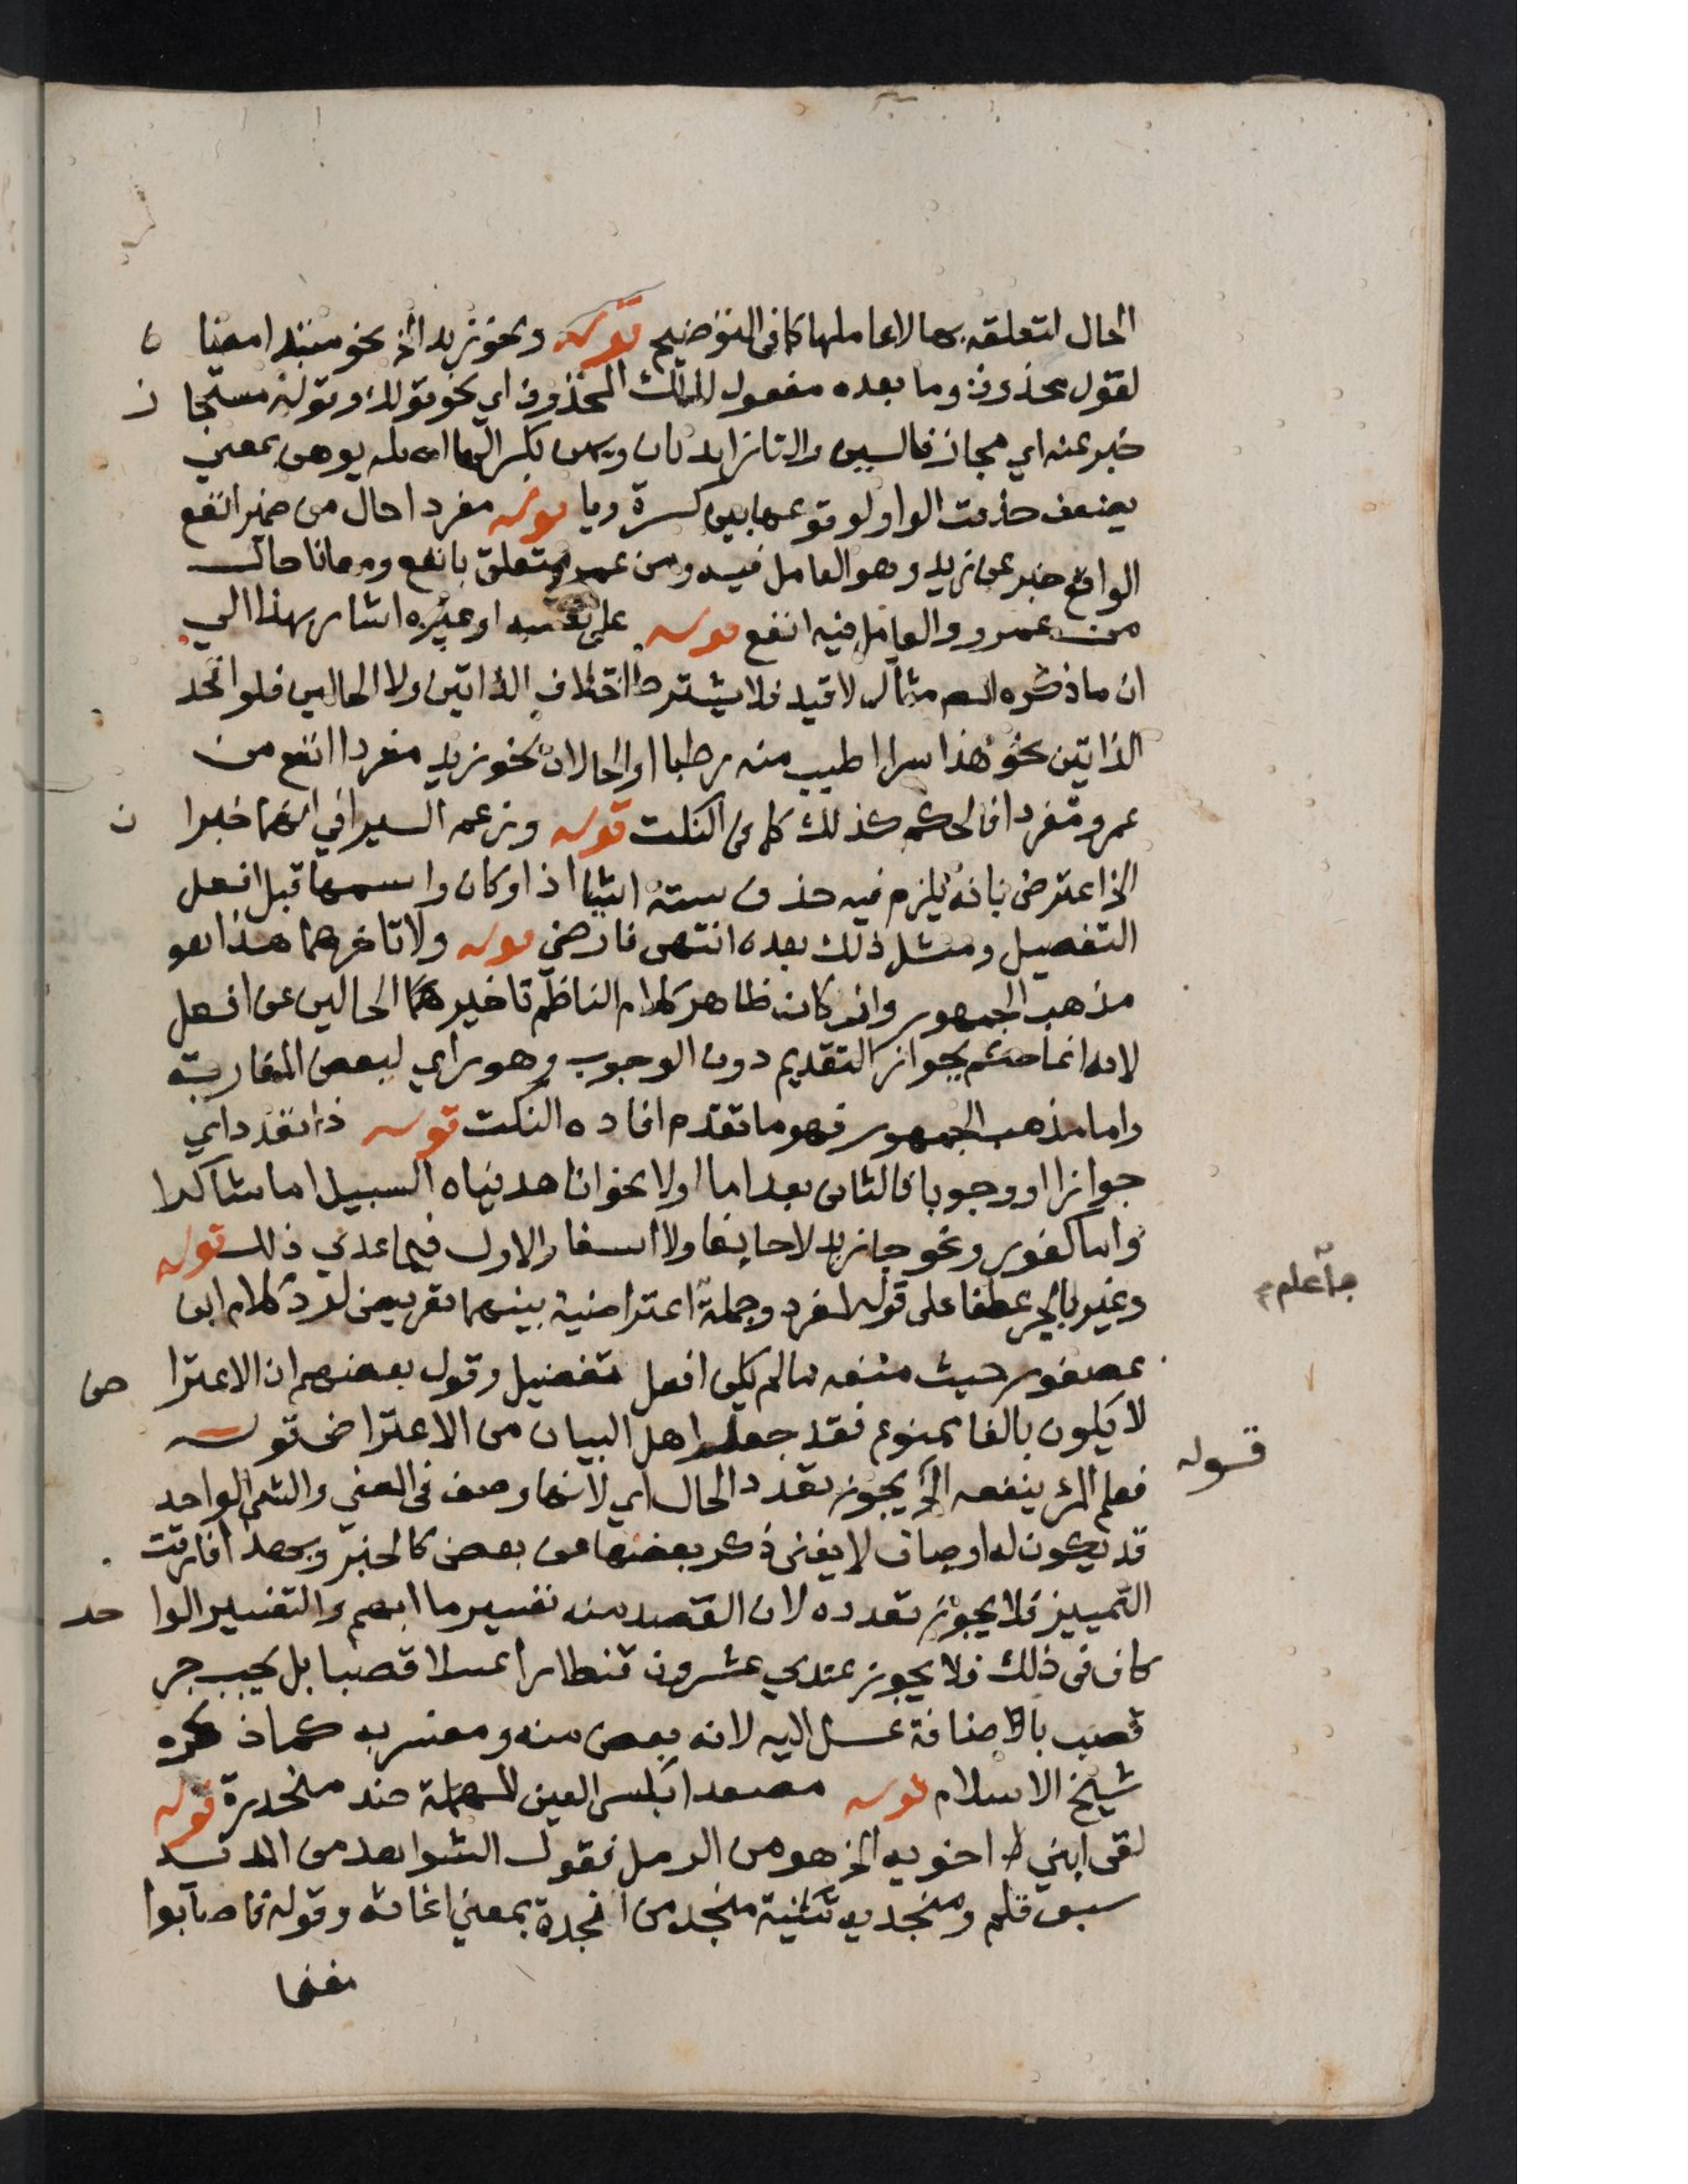 الحال لتعلقه بها لا عاملها كما في التوضيح قوله ونحو زيد الخ نحو مبتدا مضا
لقول محذوف وما بعده مفعول لذلك المحذوف اي نحو قولك وقوله مستجا ز
خبر عنه اي مجاز فالسين والتا زايدتان ويهن بكسر الها يوهن بمعني
يضعف حذفت الواو لوقوعها بين كسرة ويا قوله مفردا حال من ضمير انفع
الواقع خبر عن زيد وهو العامل فيه ومن عمرو متعلق بانفع ومعانا حال
من عمرو والعامل فيه انفع قوله على اوغيره اشار بهذا الي
ان ما ذكره المص مثال لا قيد فلا يشترط اختلاف الذاتين ولا الحالين فلو اتحد
الذاتين نحو هذا بسرا اطيب منه رطبا او الحالان نحو زيد مفردا انفع من
عمرو مفردا فالحكم كذلك كما في النكت قوله وزعم السيرافي انهما خبرا ن
الخ اعترض بانه يلزم فيه حذف ستة اشيا اذا وكان واسمها قبل افعل
التفصيل ومثل ذلك بعده انتهى فارضي قوله ولا تاخرهما هذا هو
مذهب الجمهور وان كان ظاهر كلام الناظم تاخير هما الحالين عن افعل
لانه انما حكم بجواز التقديم دون الوجوب وهو راي لبعض المغاربة
واما مذهب الجمهور فهو ما تقدم افاده النكت قوله ذا تعدد اي
جوازا او وجوبا فالثاني بعد اما اولا نحو انا هديناه السبيل اما شاكرا
واما كفورا ونحو جا زيد لا خايفا ولا اسفا والاول فيما عدي ذلك قوله
وغير بالجر عطفا على قوله لمفرد وجملة اعتراضية بينهما تعريض لرد كلام ابن
جملة اعلم
عصفور حيث منعه ما لم يكن افعل تفضيل وقول بعضهم ان الاعترا ض
لا يكون بالفا ممنوع فقد جعله اهل البيان من الاعتراض قوله
قوله
فعلم المرء ينفعه الخ يجوز تعدد الحال اي لانها وصف في المعنى والشي الواحد
قد يكون له اوصاف لا يغنى ذكر بعضها عن بعض كالخبر وبهذا فارقت
التمييز فلا يجوز تعدده لان القصد منه تفسير ما ابهم والتفسير الوا حد
كاف في ذلك فلا يجوز عندي عشرون قنطارا عسلا قصبا بل يجب جر
قصب بالاضافة عسل اليه لانه بعض منه ومفسر به كما ذكره
شيخ الاسلام قوله مصعدا بكسر العين المهملة ضد منحدرة قوله
لقى ابني اخويه الخ هو من الرمل فقول الشوا هد من المديد
سبق قلم ومنجديه تثنية منجد من انجدة بمعني اغاثه وقوله فاصابوا
مغنما